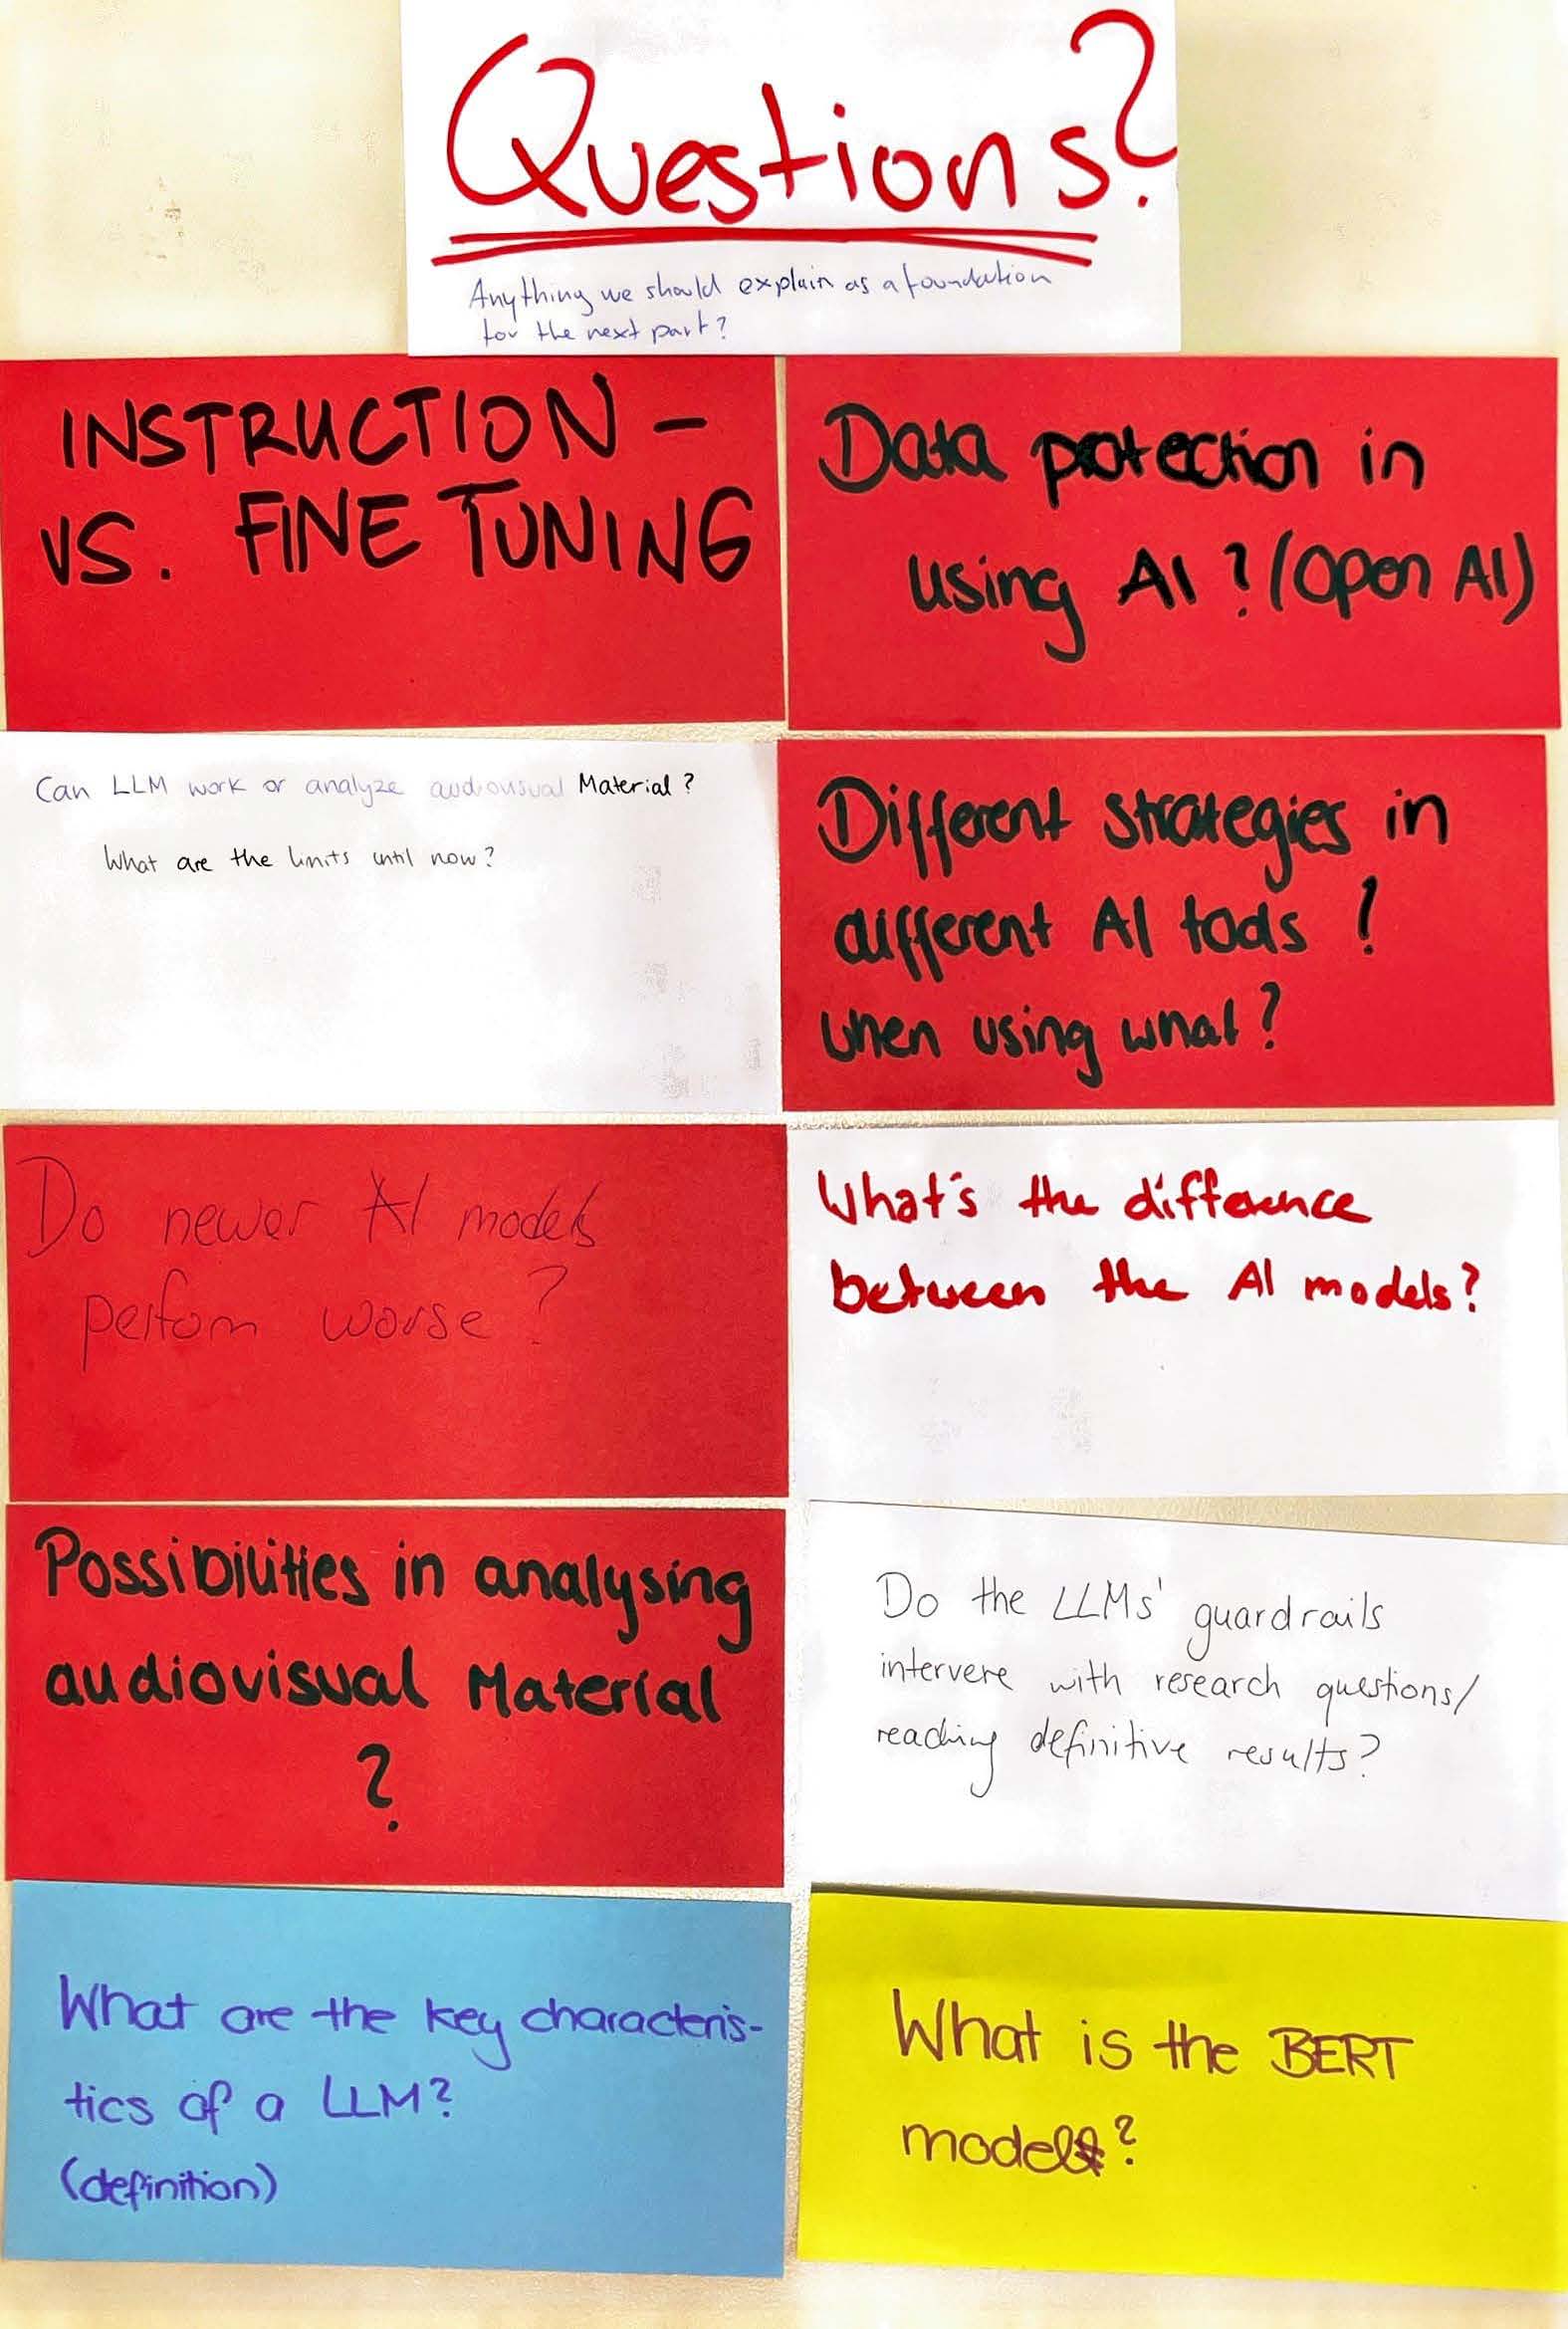 Questions?
Anything we should explain as a foundation
for the next part?
INSTRUCTION -
VS. FINE TUNING
Data protection in
using AI? (Open AI)
Can LLM work or analyze audiovisual Material?
What are the limits until now?
Different strategies in
different AI tools!
when using what?
Do newer AI models
perfom worse?
What's the difference
between the AI models?
Possibilities in analysing
audiovisual Material
?
Do the LLMs' guardrails
intervere with research questions/
reaching definitive results?
What are the key characteris-
tics of a LLM?
(definition)
What is the BERT
model?